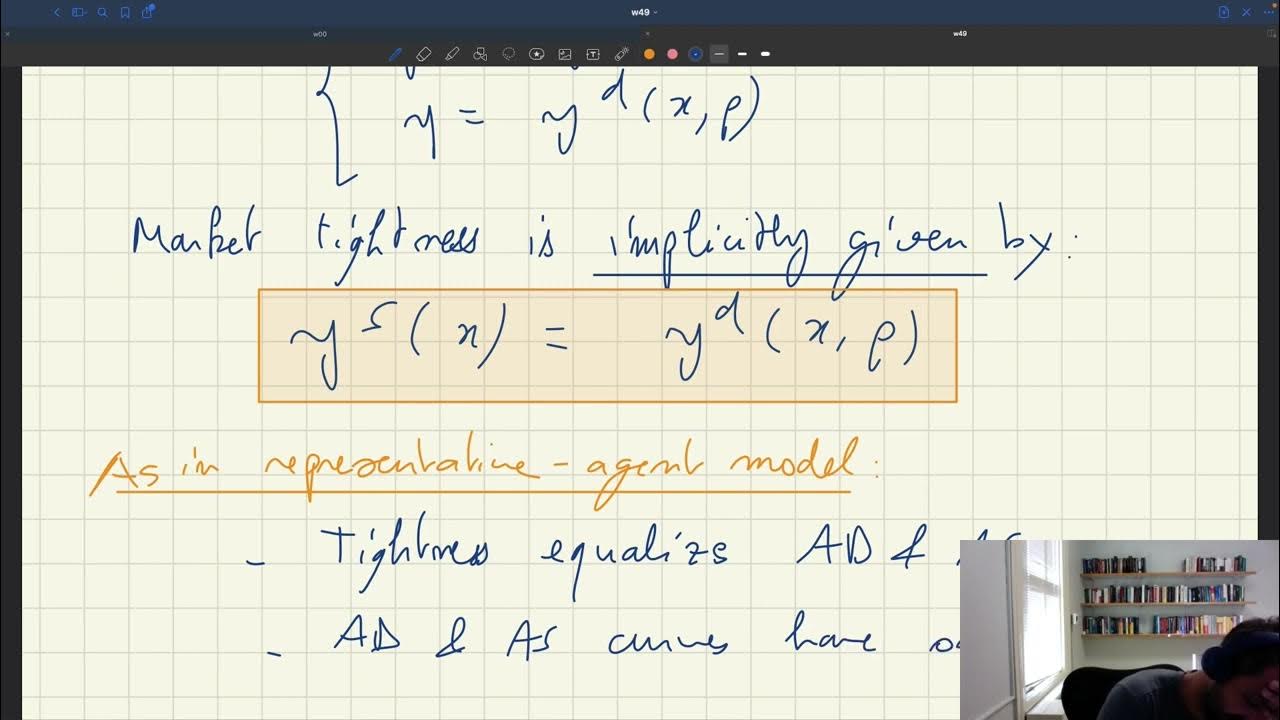 w49
w00
w49
y = y^d (x, p)
Market tightness is implicitly given by:
y^s (x) = y^d (x, p)
As in representative-agent model:
- Tightness equalizes AD &
- AD & AS curves have